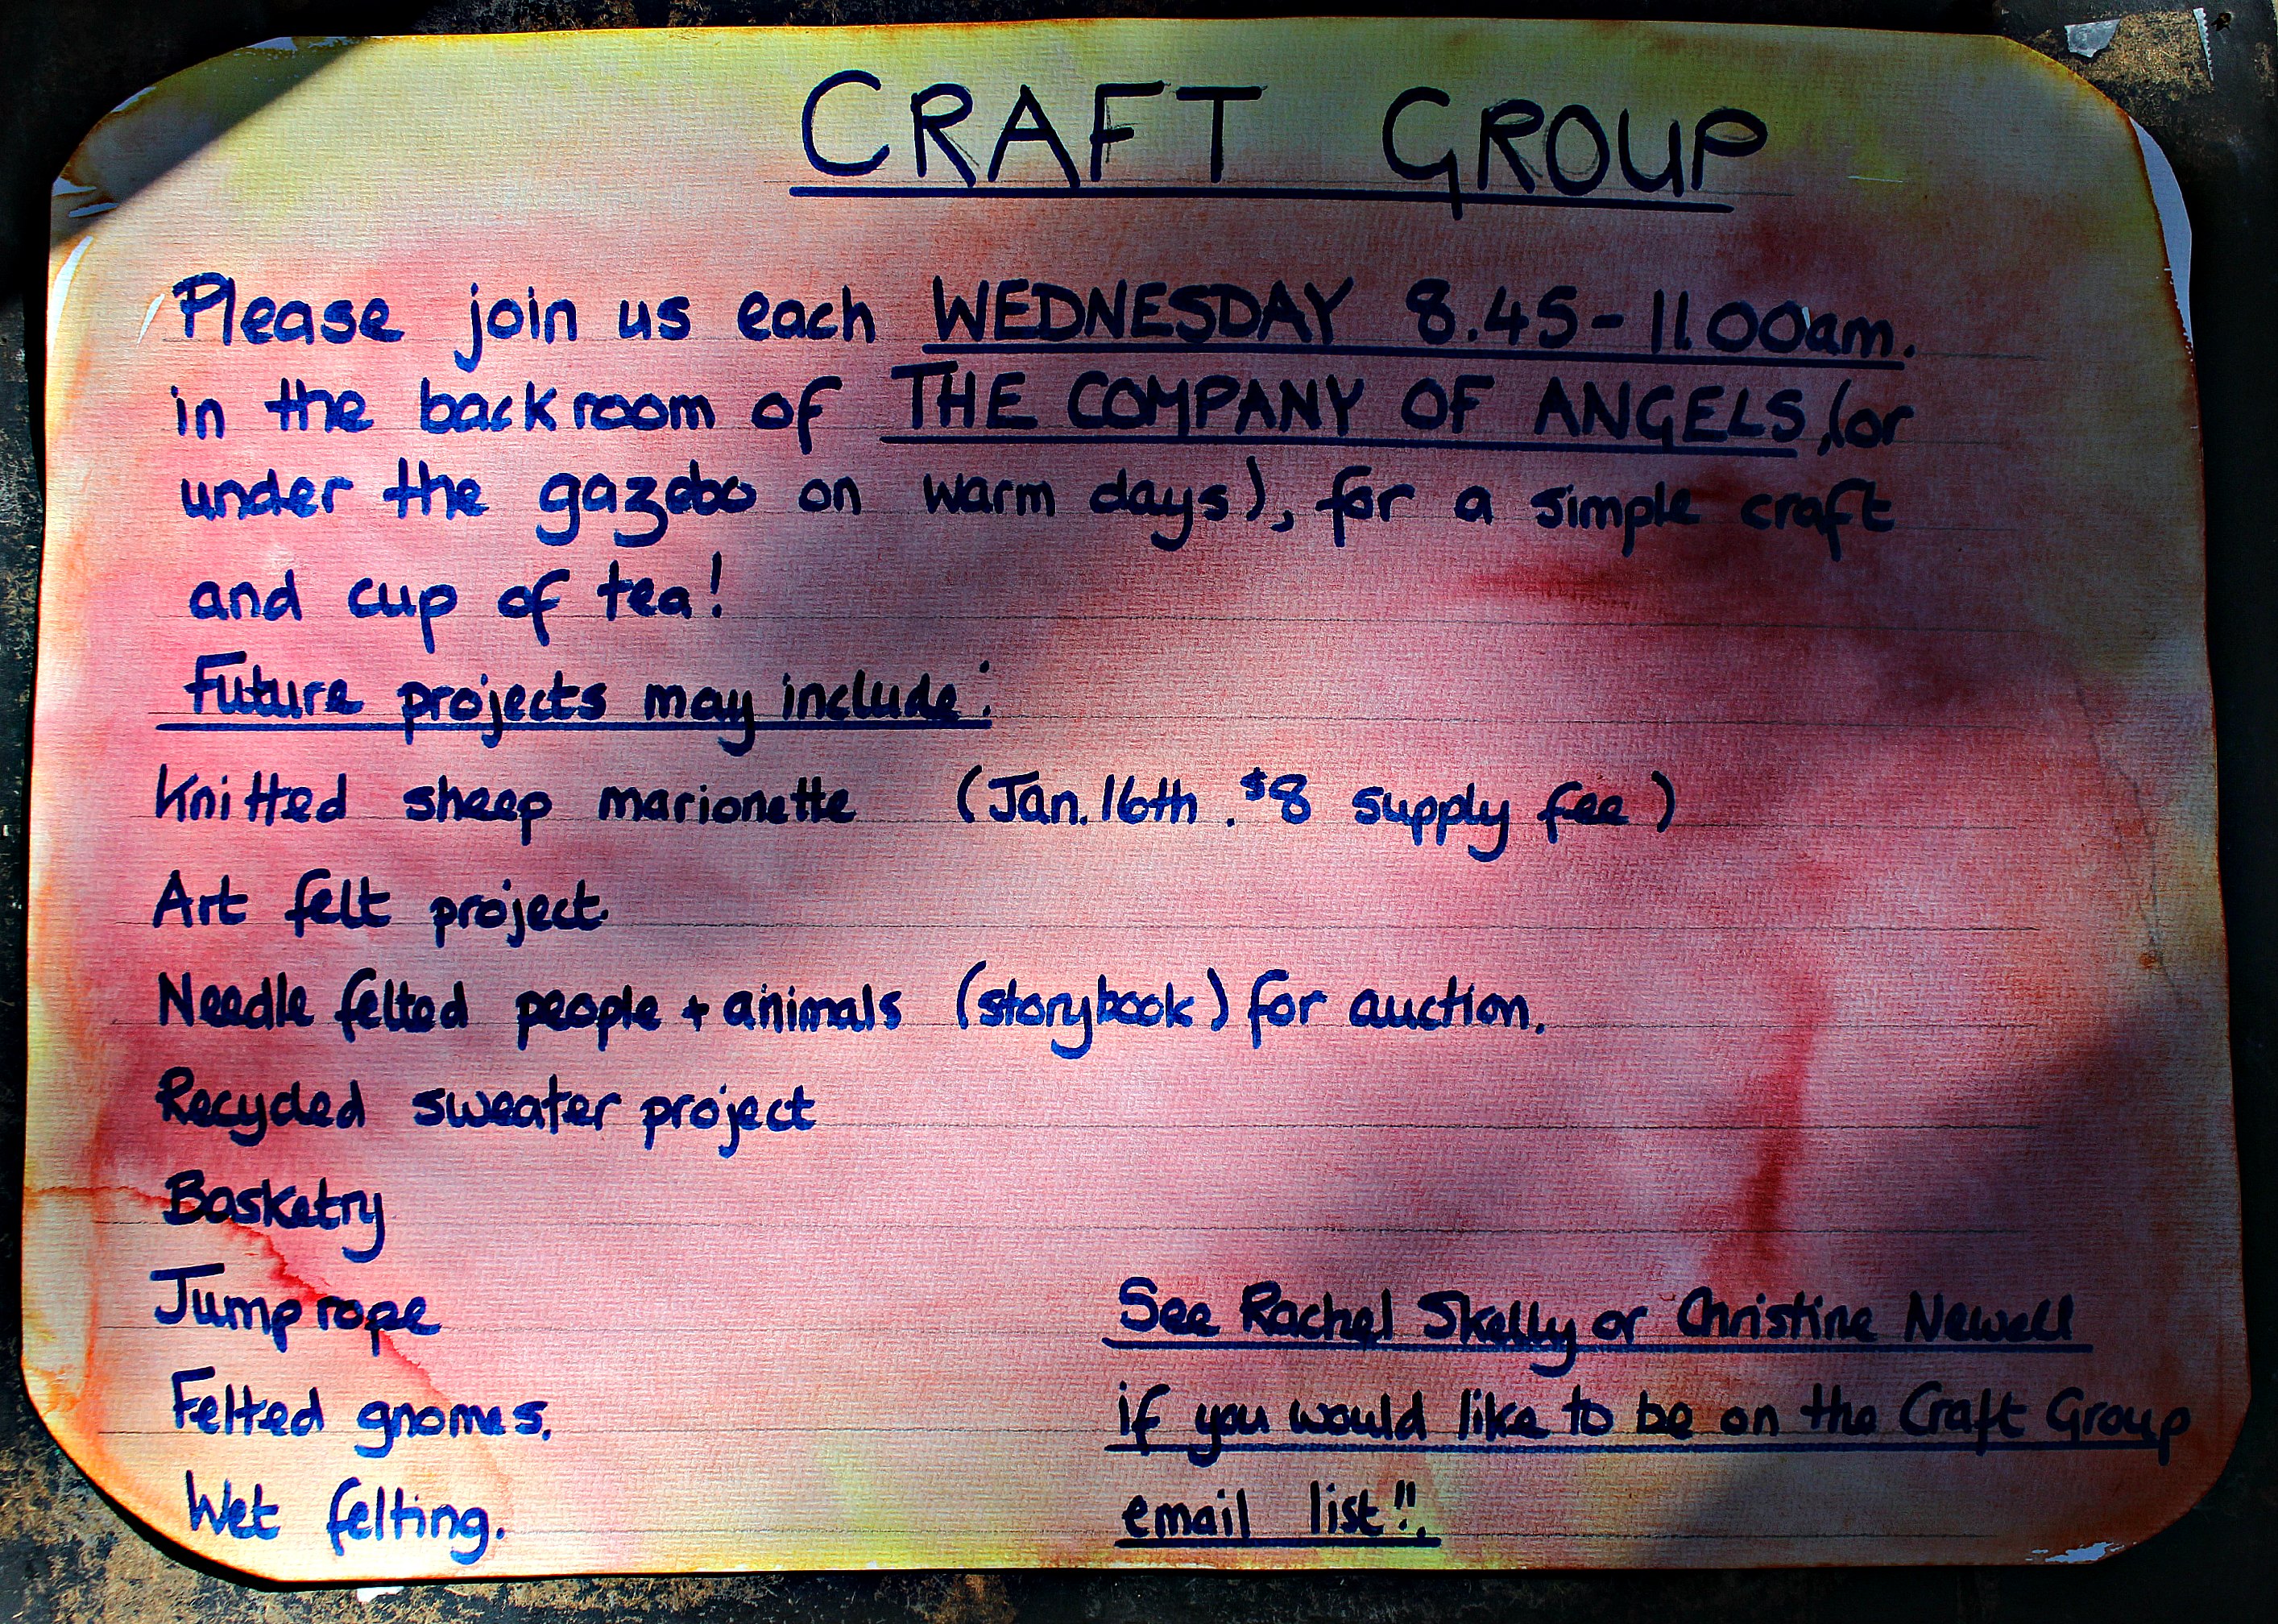 CRAFT GROUP
Please join us each WEDNESDAY 8.45-11.00am.
in the backroom of THE COMPANY OF ANGELS, (or
under the gazebo on warm days), for a simple craft
and cup of tea!
Future projects may include:
Knitted sheep marionette (Jan. 16th. $8 supply fee)
Art felt project
Needle felted people + animals (storybook) for auction.
Recycled sweater project
Basketry
Jump rope
Felted gnomes.
Wet felting.
See Rachel Skelly or Christine Newell
if you would like to be on the Craft Group
email list!!